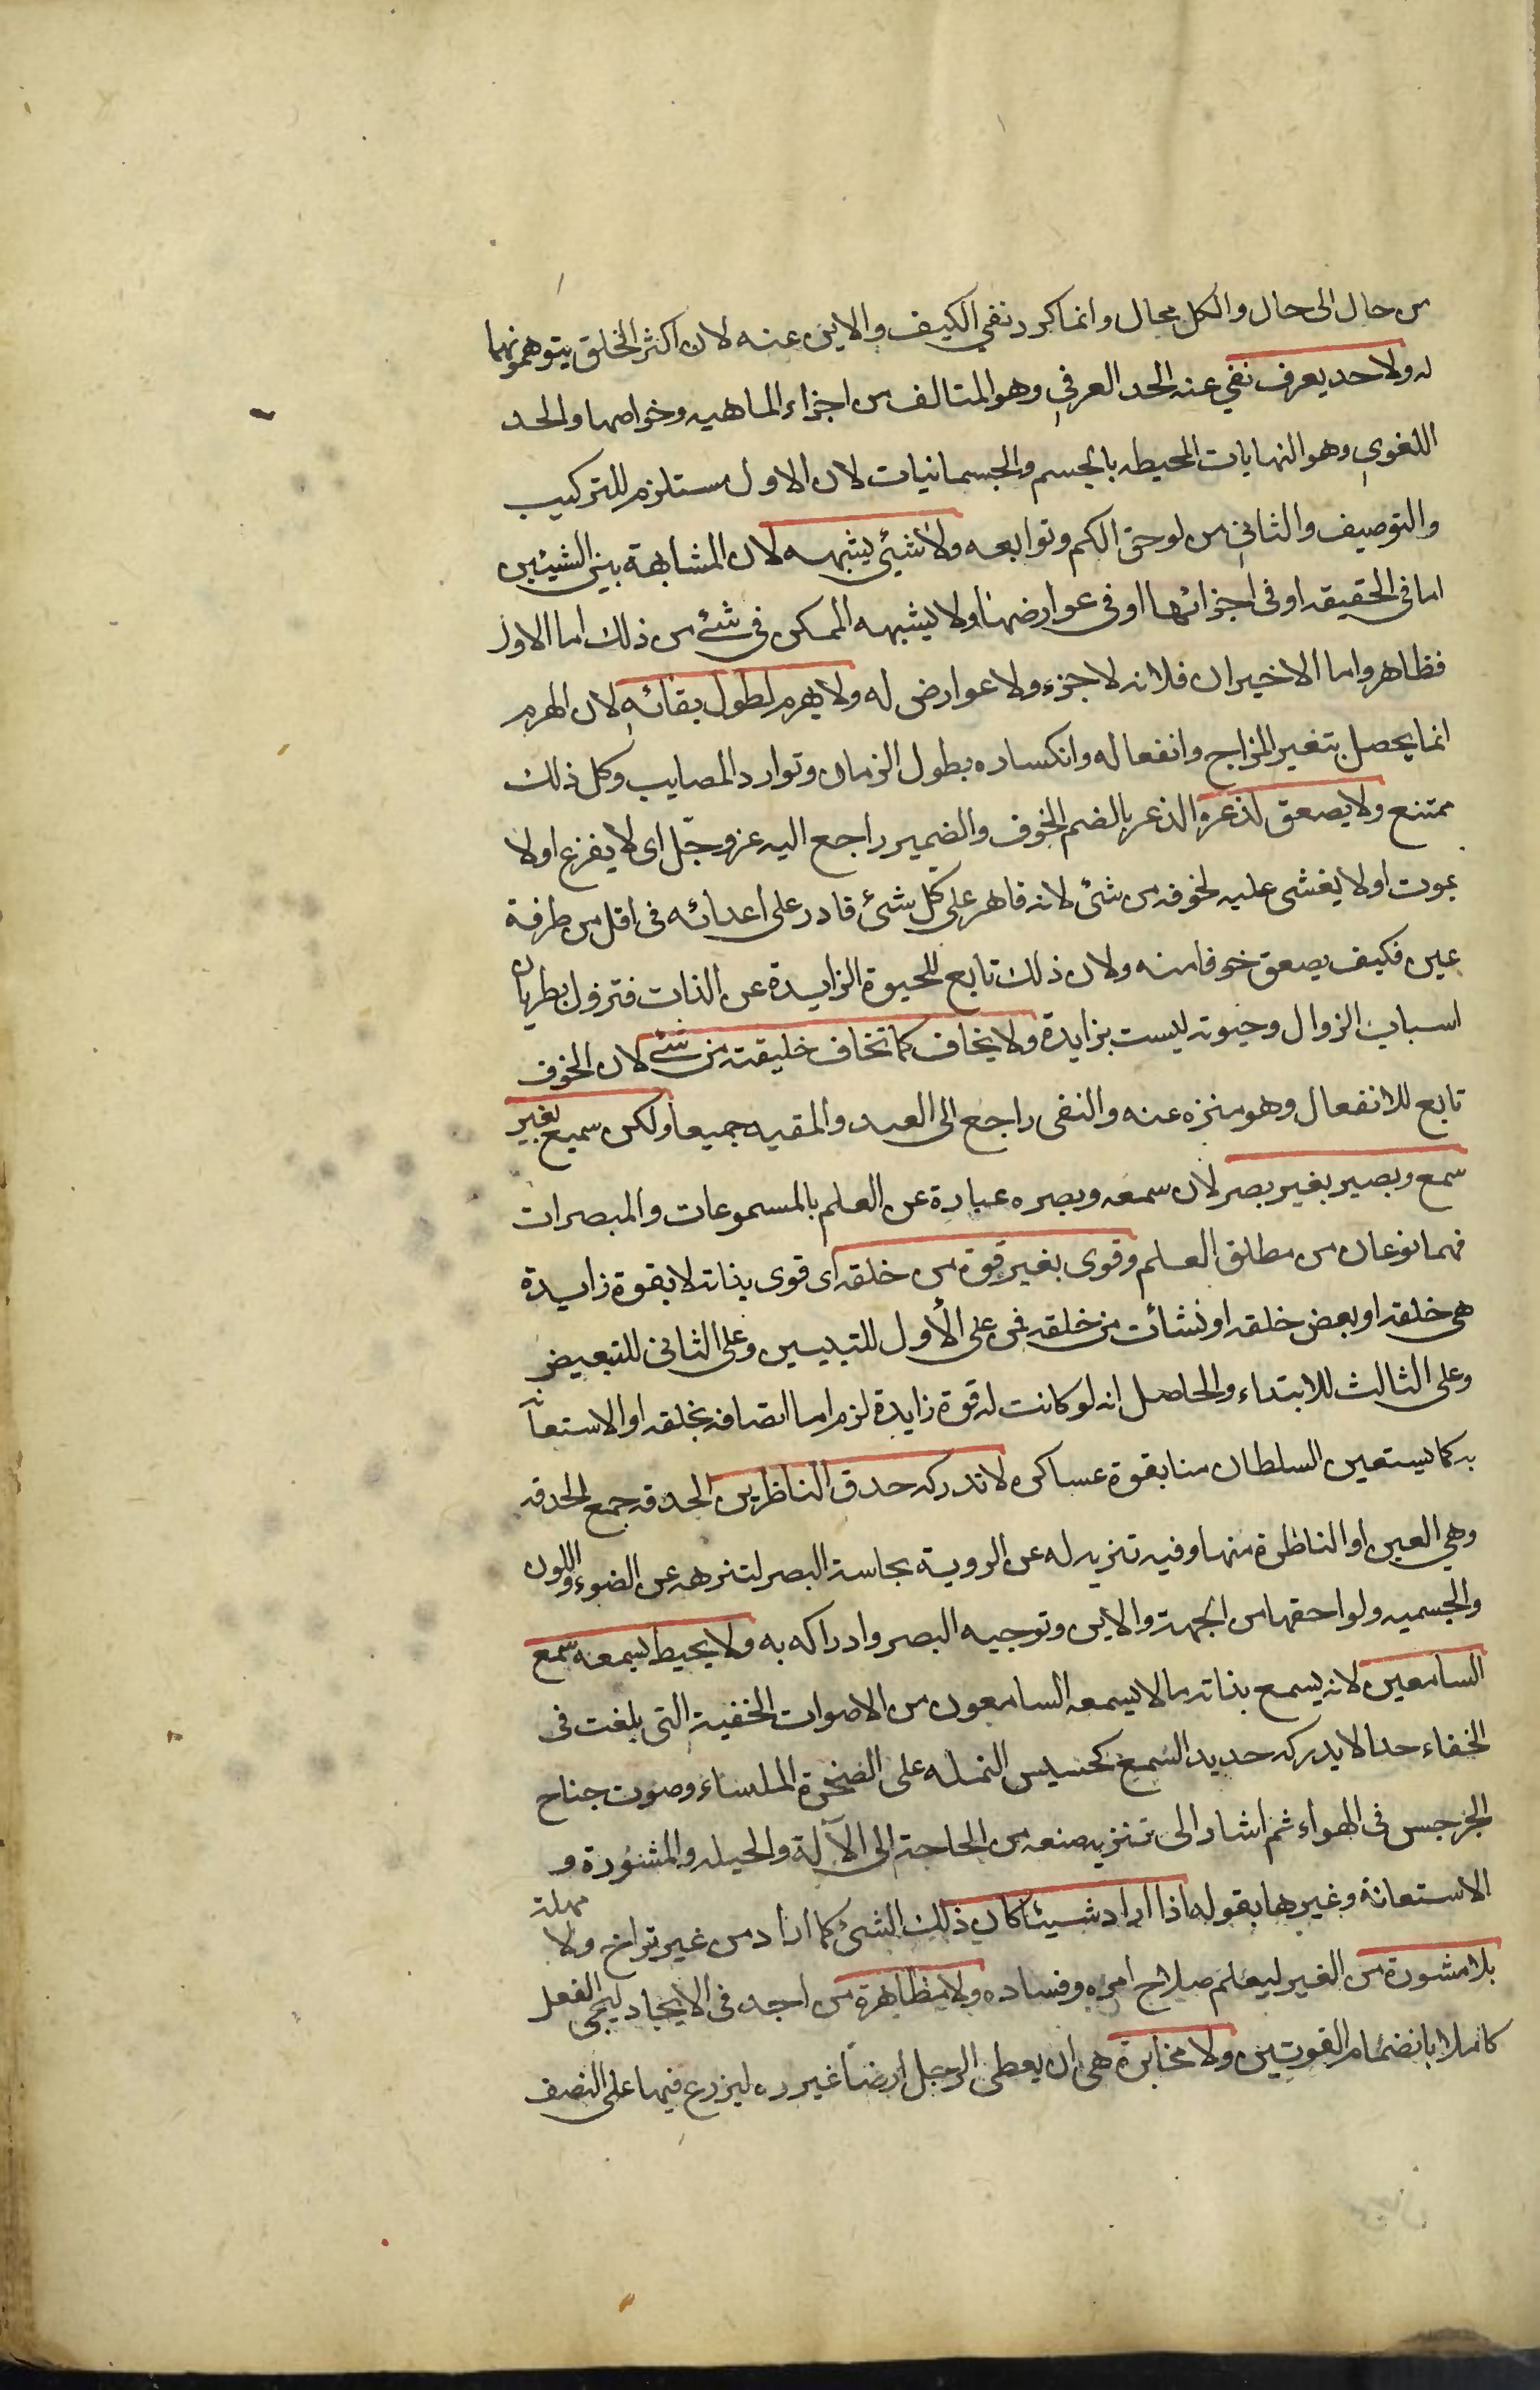 من حال الى حال والكل محال وانما كرر نفي الكيف والاين عنه لان اكثر الخلق يتوهمونهما
له ولا حد يعرف نفي عنه الحد العرفي وهو المتالف من اجزاء الماهيه وخواصها والحد
اللغوي وهو النهايات المحيطه بالجسم والجسمانيات لان الاول مستلزم للتركيب
والتوصيف والثاني من لوحق الكم وتوابعه ولا شيئ يشبهه لان المشابهة بين الشيئين
اما في الحقيقه او في اجزائها او في عوارضها ولا يشبهه الممكن في شئ من ذلك اما الاول
فظاهر واما الاخيران فلانه لا جزء ولا عوارض له ولا يهرم لطول بقائه لان الهرم
انما يحصل بتغير المزاج وانفعاله وانكساره بطول الزمان وتوارد المصايب وكل ذلك
ممتنع ولا يصعق لذعره الذعر بالضم الخوف والضمير راجع اليه عز وجّل اى لا يفزع اولا
يموت اولا يغشى عليه لخوفه من شئ لانه قاهر على كل شئ قادر على اعدائه في اقل من طرفة
عين فكيف يصعق خوفا منه ولان ذلك تابع للحيوة الزايدة عن الذات فتزول بطريان
اسباب الزوال وحيوته ليست بزايدة ولا يخاف كما تخاف خليقته من شئ لان الخوف
تابع للانفعال وهو منزه عنه والنفى راجع الى العبد والمقيد جميعا ولكن سميع بغير
سمع وبصير بغير بصر لان سمعه وبصره عبارة عن العلم بالمسموعات والمبصرات
فهما نوعان من مطلق العلم وقوى بغير قوة من خلقه اى قوى بذاته لا بقوة زايدة
هي خلقه او بعض خلقه او نشأت من خلقه فمن على الأول للتبيين وعلى الثانى للتبعيض
وعلى الثالث للابتداء والحاصل انه لو كانت له قوة زايدة لزم اما اتصافه بخلقه او الاستعانة
به كما يستعين السلطان منا بقوة عساكره لا تدركه حدق الناظرين الحدقه جمع الحدقه
وهي العين او الناظرة منها وفيه تنزيه له عن الروية بحاسة البصر لتنزهه عن الضوء واللون
والجسميه ولواحقها من الجهة والاين وتوجيه البصر وادراكه به ولا يحيط بسمعه سمع
السامعين لانه يسمع بذاته ما لا يسمعه السامعون من الاصوات الخفية التى بلغت فى
الخفاء حدا لا يدركه حديد السمع كحسيس النمله على الصخرة الملساء وصوت جناح
الجرجس فى الهواء ثم اشار الى تنزيه صنعه من الحاجة الى الآلة والحيله والمشورة و
الاستعانة وغيرها بقوله اذا اراد شيئا كان ذلك الشئ كما اراد من غير تراخ ولا مهلة
بلا مشورة من الغير ليعلم صلاح امره وفساده ولا مظاهرة من احد فى الايجاد ليجى الفعل
كاملا بانضمام القوتين ولا مخابرة هى ان يعطى الرجل ارضا غيره ليزرع فيها على النصف